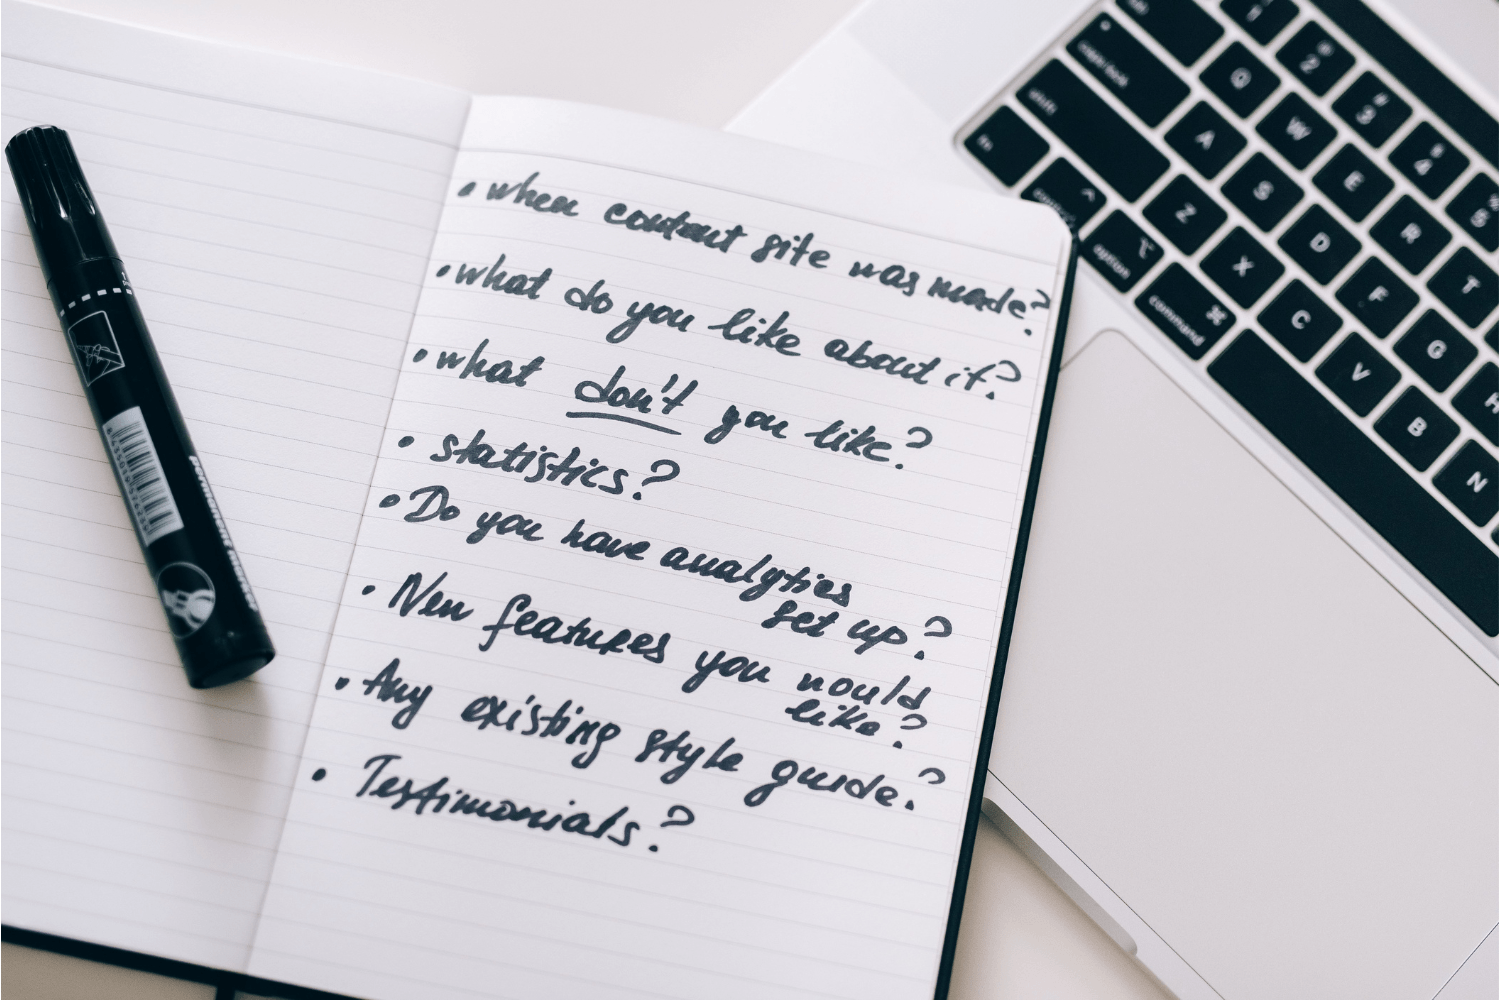 • when content site was made?
• what do you like about it?
• what don't you like?
• statistics?
• Do you have analytics
set up?
• New features you would
like?
• Any existing style guide?
• Testimonials?
permanent marker
1
@ 2
# 3
$ 4
% 5
Q W E R T
caps lock A S D F G H
shift Z X C V B N
fn control option command